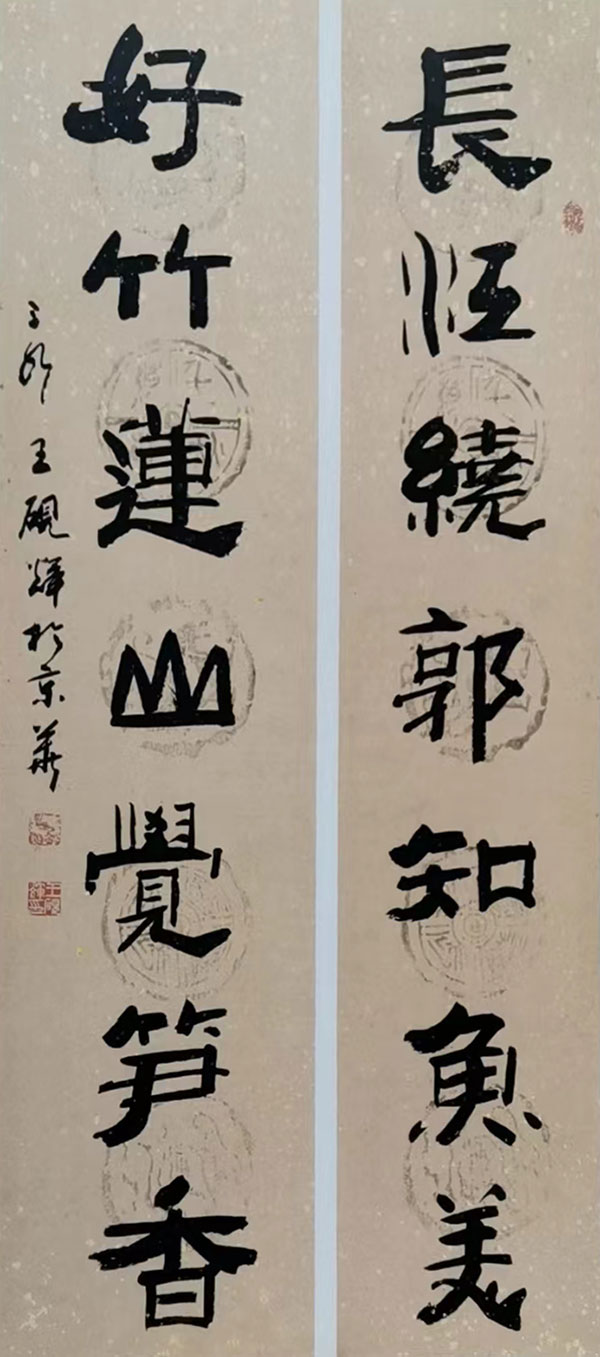 長江繞郭知魚美
好竹蓮山覺笋香
王硯輝於京華